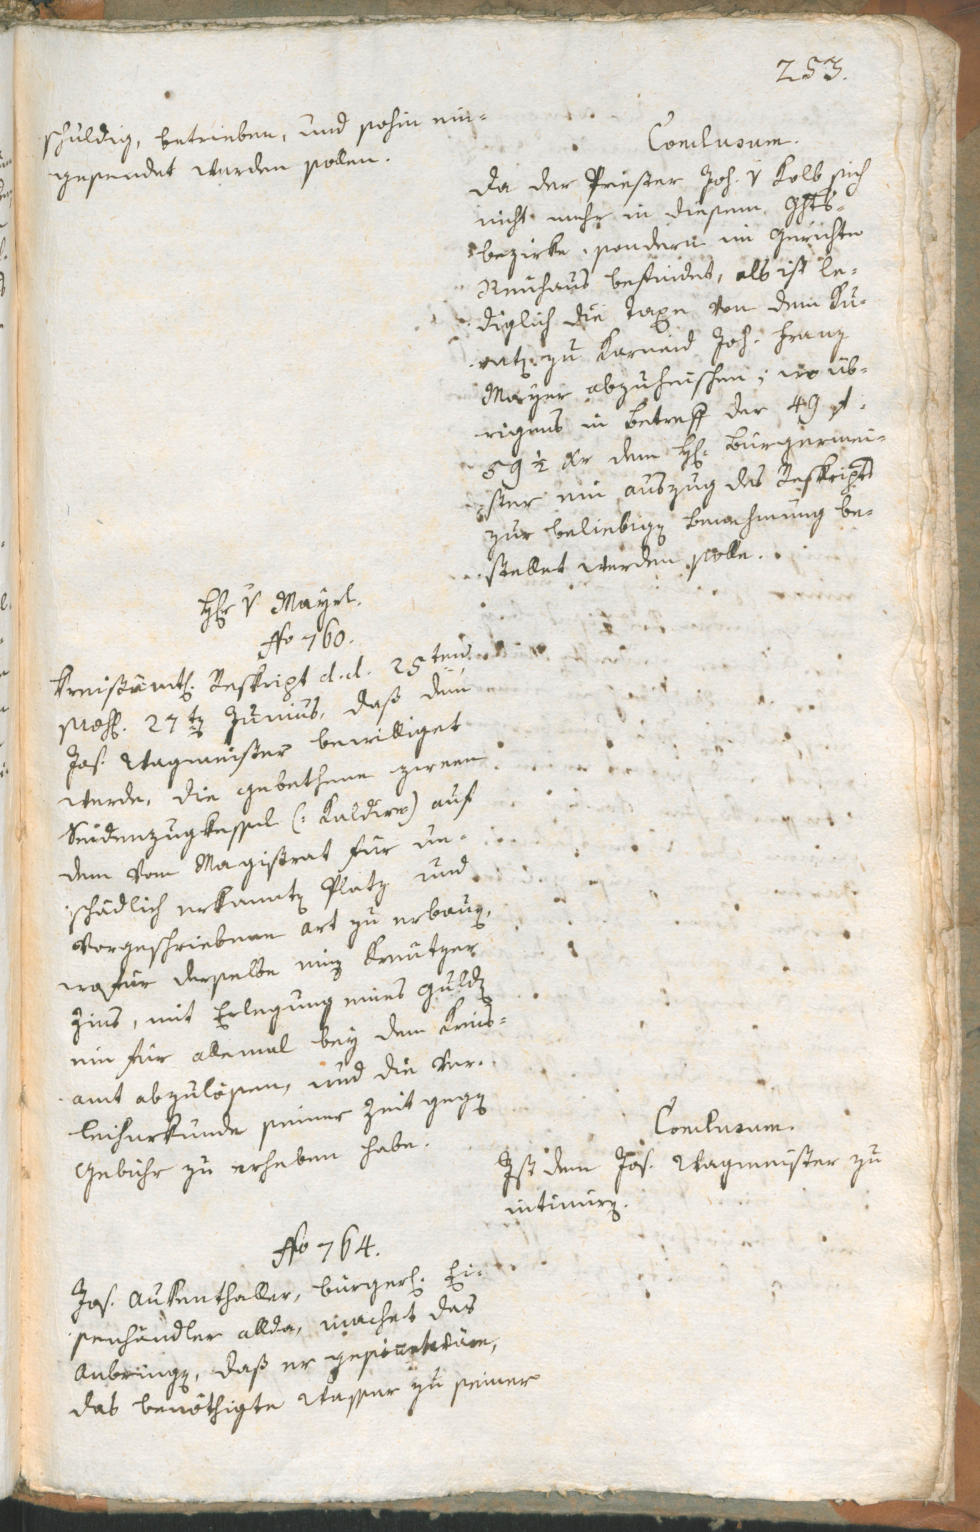 253.
schuldig, betrieben, und sohin ein-
gesendet werden sollen.
Conclusum.
Da der Priester Joh. v Kolb sich
nicht mehr in diesem Ghts-
bezirke, sondern im Gerichte
Neuhaus befindet, als ist le-
diglich die Taxe von dem Ku-
ratz. zu Karneid Joh. Franz
Mayer abzuheischen; wo üb-
rigens in Betreff der 49 f.
59 ½ xr dem H: Bürgermei-
ster ein Auszug des Reskripts
zur beliebig Benehmung be-
stellet werden solle.
Hr v Mayrl.
No 760.
Kreisämtl. Reskript d.d. 25ten
27t Junius, daß dem
Jos. Wagmeister bewilliget
werde, die gebethene zween
Seidenzugkessel (: Kaldirer) auf
dem vom Magistrat für un-
schädlich erkannt Platz und
vorgeschriebene Art zu erbau,
wofür derselbe ein Kreutzer
Zins, mit Erlegung eines Guld
ein für allemal bey dem Kreis-
amt abzulösen, und die Ver-
leihurkunde seiner Zeit geg
Gebühr zu erheben habe.
Conclusum.
Ist dem Jos. Wagmeister zu
intimir.
No 764.
Jos. Aukenthaller, bürgerl. Ei-
senhändler allda, machet das
Anbring, daß er gesinnt wäre,
das benöthigte Wasser zu seiner